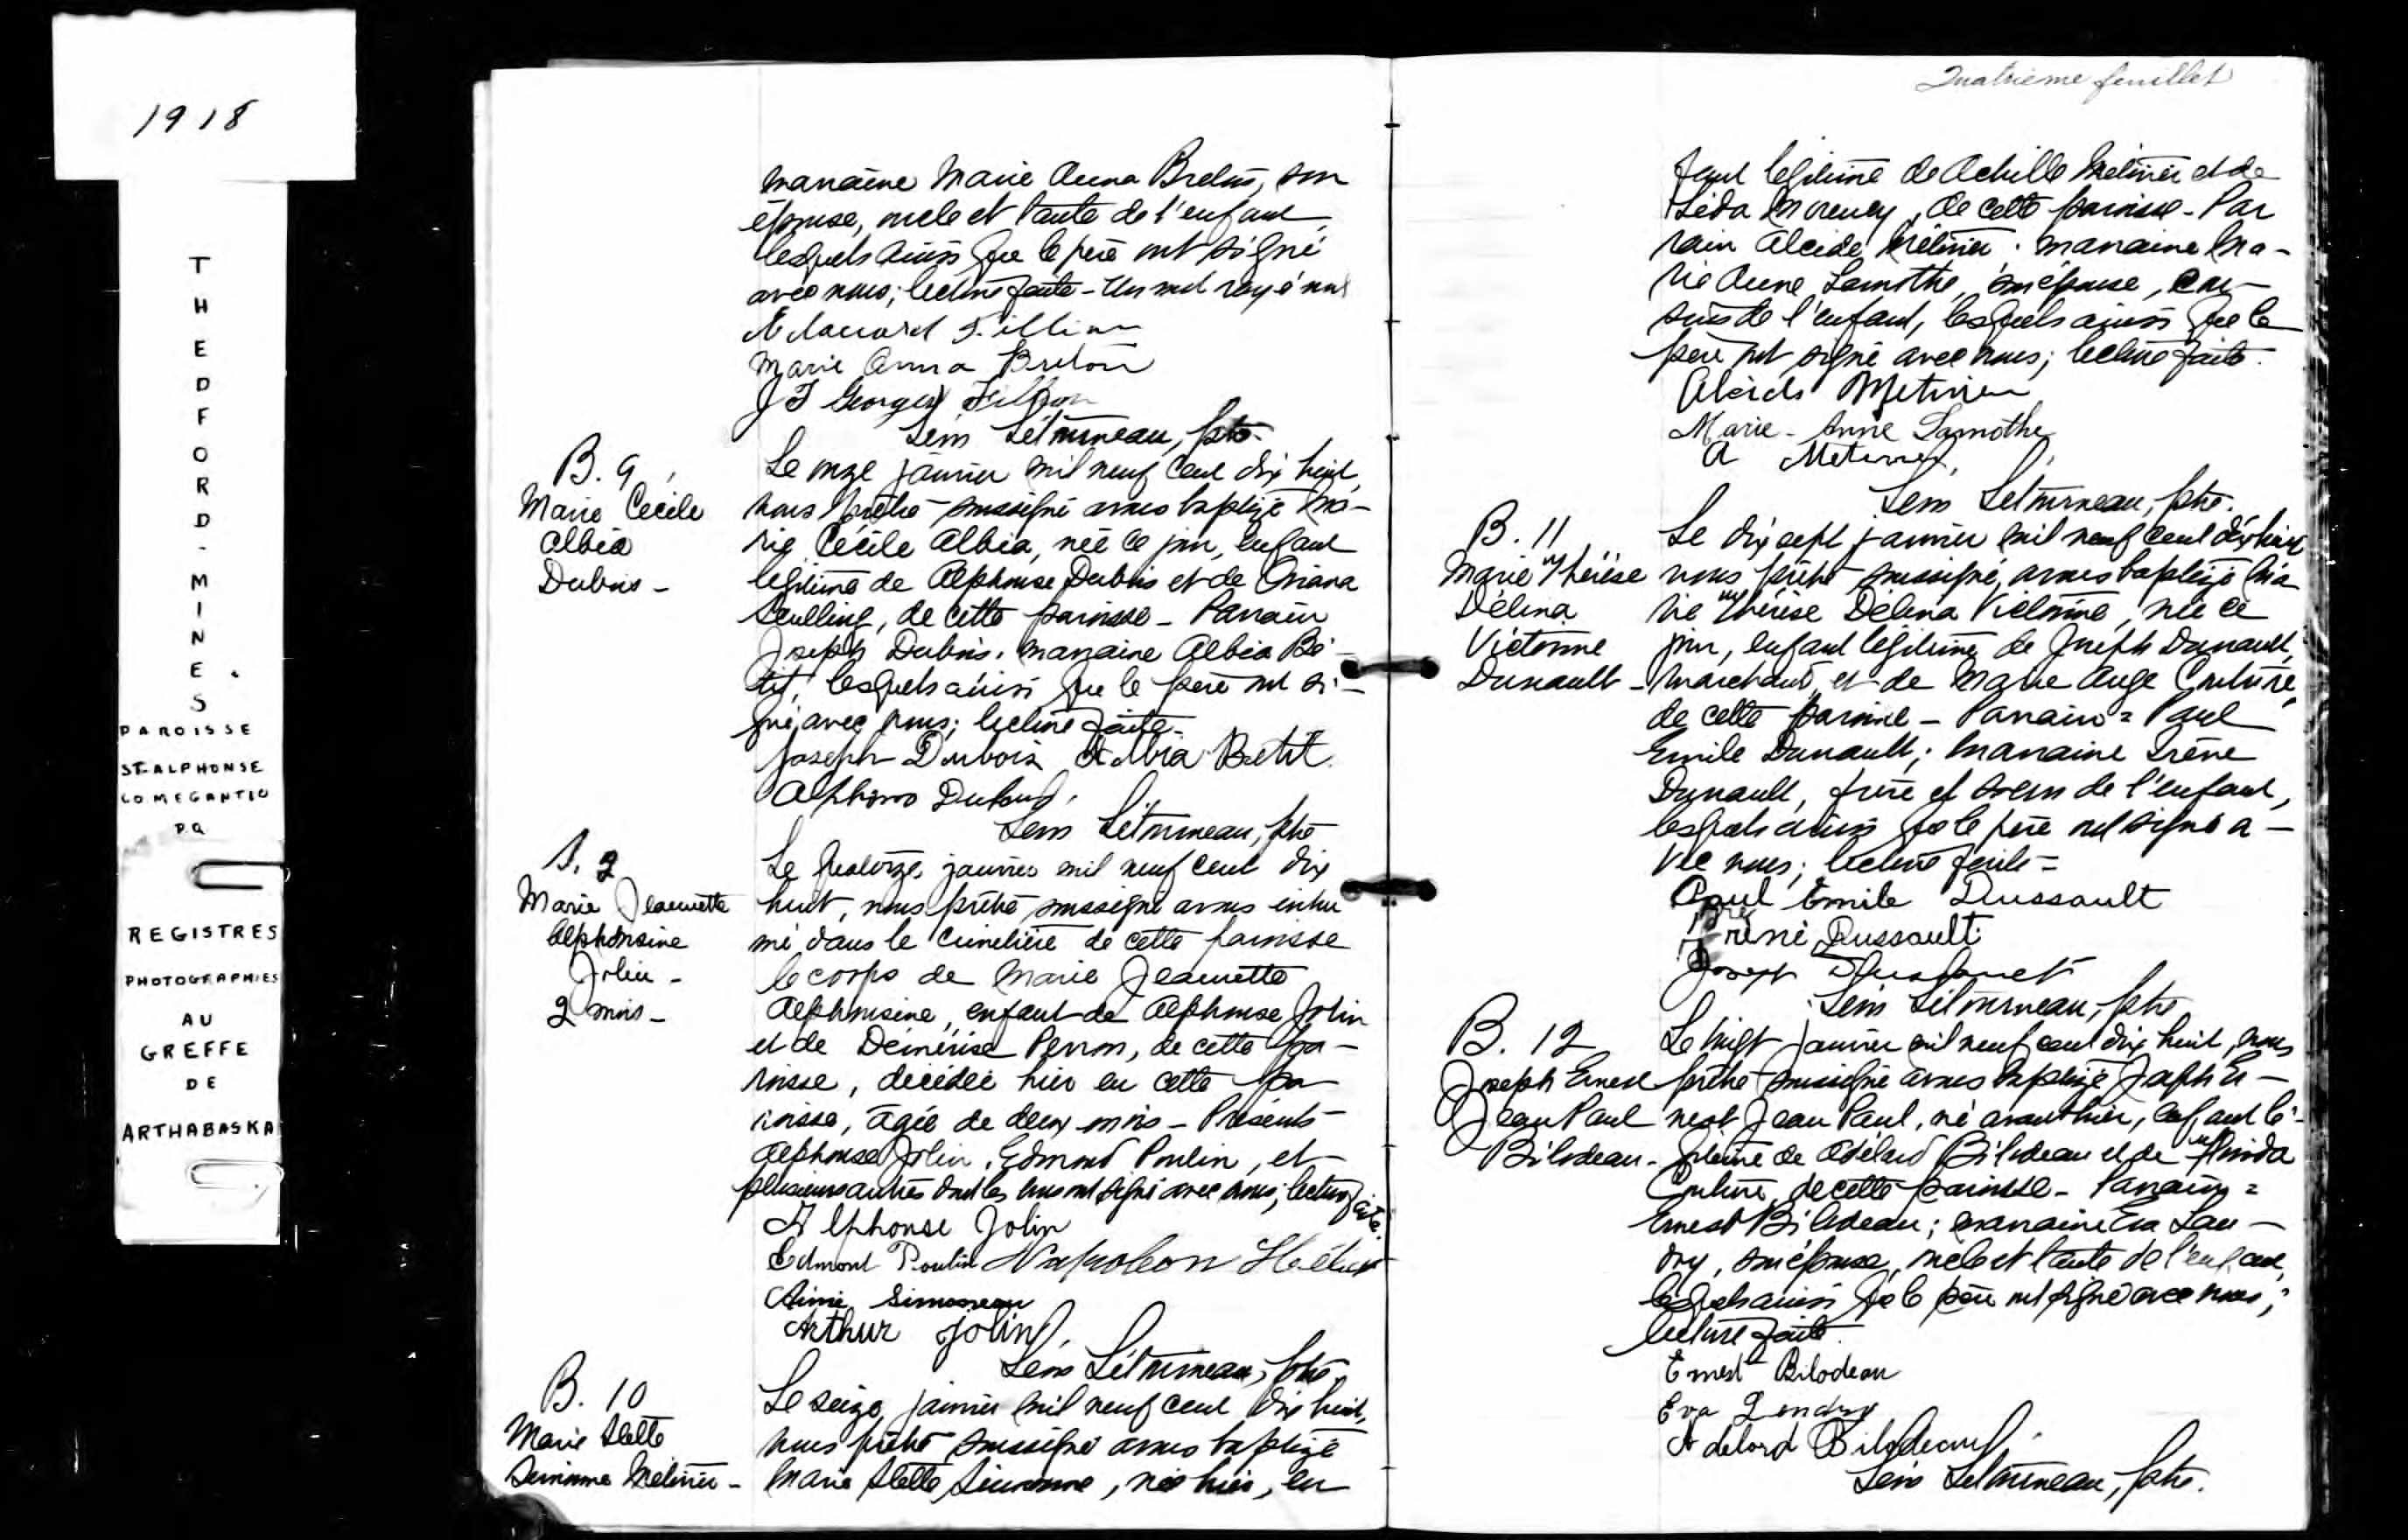 1918
THEDFORD-MINES
PAROISSE
ST-ALPHONSE
CO MEGANTIC
P.Q.
REGISTRES
PHOTOGRAPHIES
AU
GREFFE
DE
ARTHABASKA
marraine Marie Anna Breton, son
épouse, oncle et tante de l'enfant
lesquels ainsi que le père ont signé
avec nous; lecture faite - Un mot rayé nul
Edouard Fillion
Marie Anna Breton
J Georges Fillion
Létourneau, ptre.
B. 9
Marie Cécile
Albéa
Dubois -
Le onze janvier mil neuf cent dix huit,
nous prêtre soussigné avons baptizé Ma-
rie Cécile Albéa, née ce jour, enfant
légitime de Alphonse Dubois et de
de cette paroisse - Parrain
Joseph Dubois. marraine Albéa Bé-
tit, lesquels ainsi que le père ont si-
gné avec nous; lecture faite -
Joseph Dubois Albéa Betit.
Alphonse Dubois.
Létourneau, ptre
S. 2
Marie Jeannette
Alphonsine
Jolin -
2 mois -
Le quatorze janvier mil neuf cent dix
huit, nous prêtre soussigné avons inhu
mé dans le cimetière de cette paroisse
le corps de Marie Jeannette
Alphonsine, enfant de Alphonse Jolin
et de Démérise Perron, de cette pa-
roisse, décédée hier en cette pa-
roisse, âgée de deux mois - Présents
Alphonse Jolin, Edmond Poulin, et
plusieurs autres dont les uns ont signé avec nous; lecture faite.
Alphonse Jolin
Edmont Poulin Napoleon
Aimé Simoneau
Arthur Jolin.
Létourneau, ptre.
B. 10
Marie Stella
Métivier -
Le seize janvier mil neuf cent dix huit,
nous prêtre soussigné avons baptizé
Marie Stella née hier, en
Quatrième feuillet
fant légitime de Achille Métivier et de
Léda Morency, de cette paroisse - Par
rain Alcide Métivier. marraine Ma-
rie Anne Lamothe, son épouse, cou-
sins de l'enfant, lesquels ainsi que le
père ont signé avec nous; lecture faite.
Alcide Metivier
Marie-Anne Lamothe
A Metivier
Létourneau, ptre.
B. 11
Marie Thérèse
Délina
Victorine
Dussault -
Le dix sept janvier mil neuf cent dix huit
nous prêtre soussigné, avons baptizé Ma
rie Thérèse Délina Victorine, née ce
jour, enfant légitime de Joseph Dussault,
marchand, et de Marie Ange Couture,
de cette paroisse - Parrain = Paul
Emile Dussault; marraine Irène
Dussault, frère et soeur de l'enfant,
lesquels ainsi que le père ont signé a-
vec nous; lecture faite =
Paul Emile Dussault
Irène Dussault
Joseph Dussault
Létourneau, ptre
B. 12
Joseph Ernest
Jean Paul
Bilodeau -
Le vingt janvier mil neuf cent dix huit, nous
prêtre soussigné avons baptizé Joseph Er-
nest Jean Paul, né avant hier, enfant lé-
gitime de Adélard Bilodeau et de
Couture, de cette paroisse - Parrain =
Ernest Bilodeau; marraine Eva Lan-
dry, son épouse, oncle et tante de l'enfant,
lesquels ainsi que le père ont signé avec nous;
lecture faite.
Ernest Bilodeau
Eva Landry
Adelard Bilodeau
Létourneau, ptre.